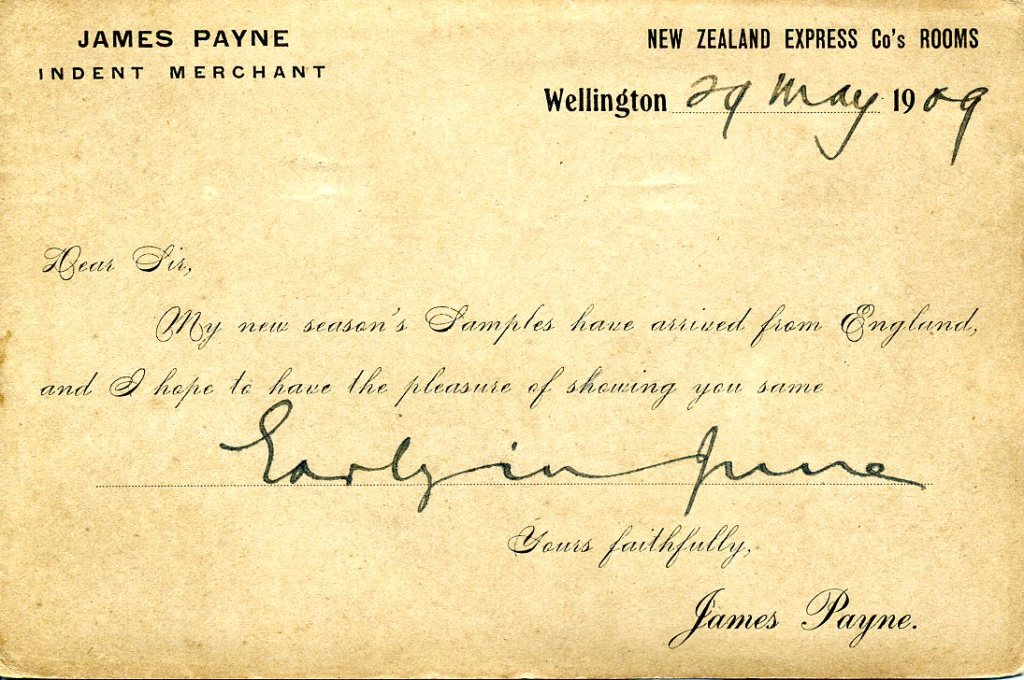 JAMES PAYNE
INDENT MERCHANT
NEW ZEALAND EXPRESS Co's ROOMS
Wellington 29 May 1909
Dear Sir,
My new season's Samples have arrived from England,
and I hope to have the pleasure of showing you same
Early in June
Yours faithfully,
James Payne.